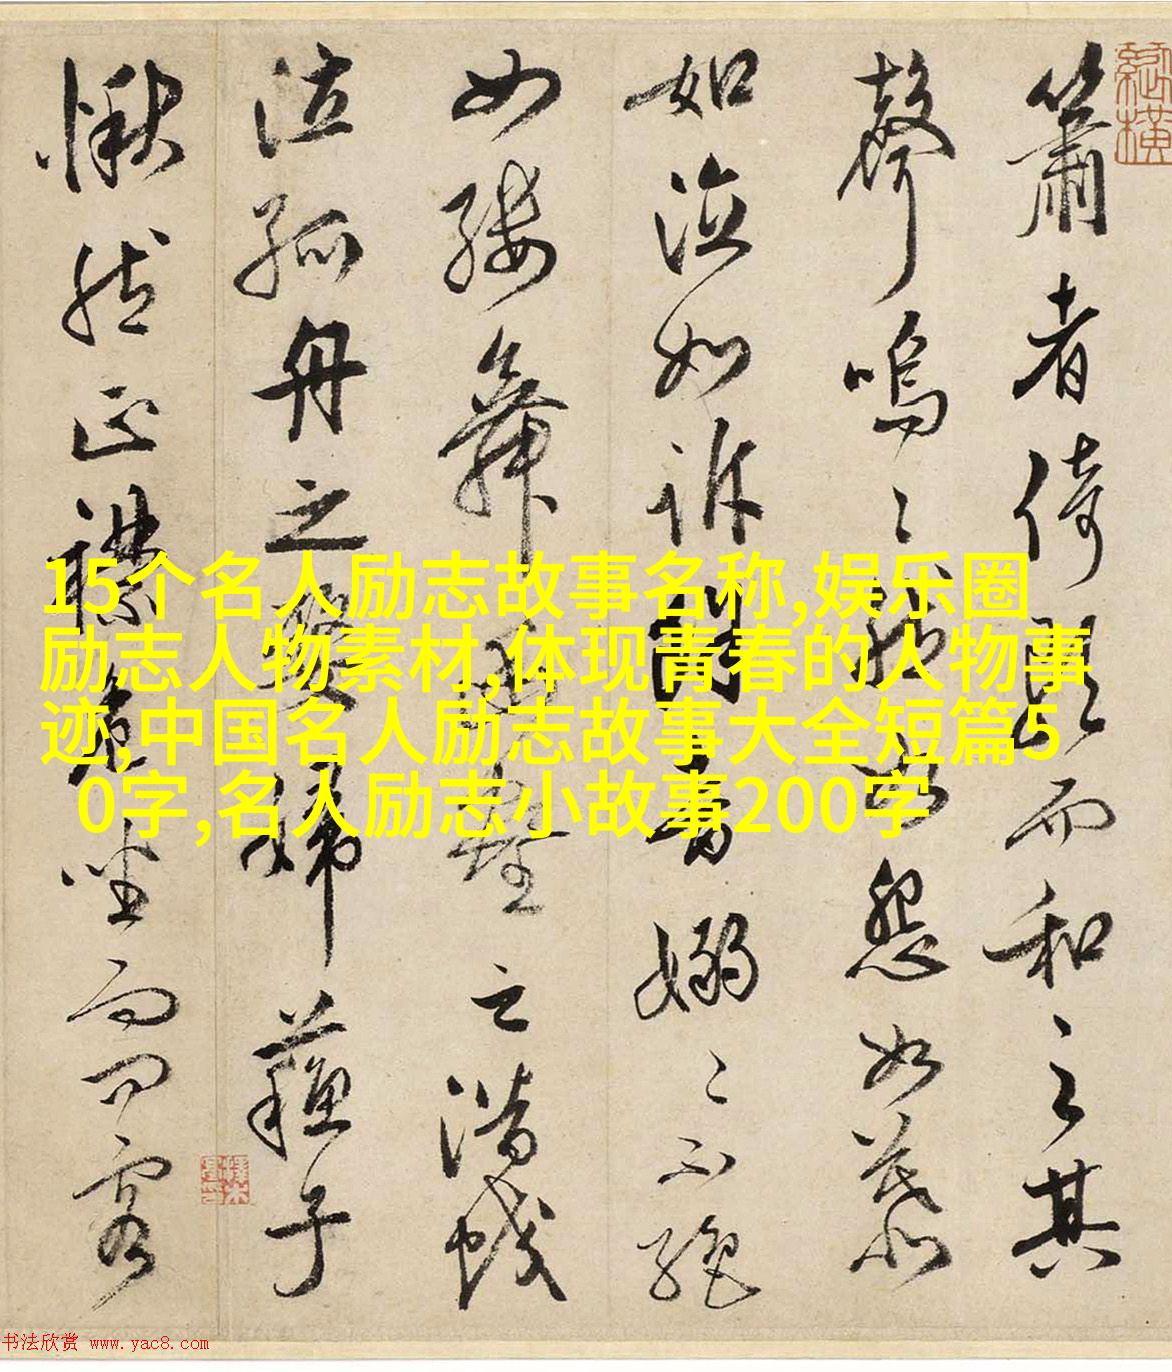 簫者倚歌而和之其
聲嗚〻然如怨如慕
如泣如訴餘音嫋〻不絕
如縷舞幽壑之潛蛟
泣孤舟之嫠婦蘇子
愀然正襟危坐而問客
15个名人励志故事名称,娱乐圈
励志人物素材,体现青春的人物事
迹,中国名人励志故事大全短篇5
0字,名人励志小故事200字
书法欣赏 www.yac8.com